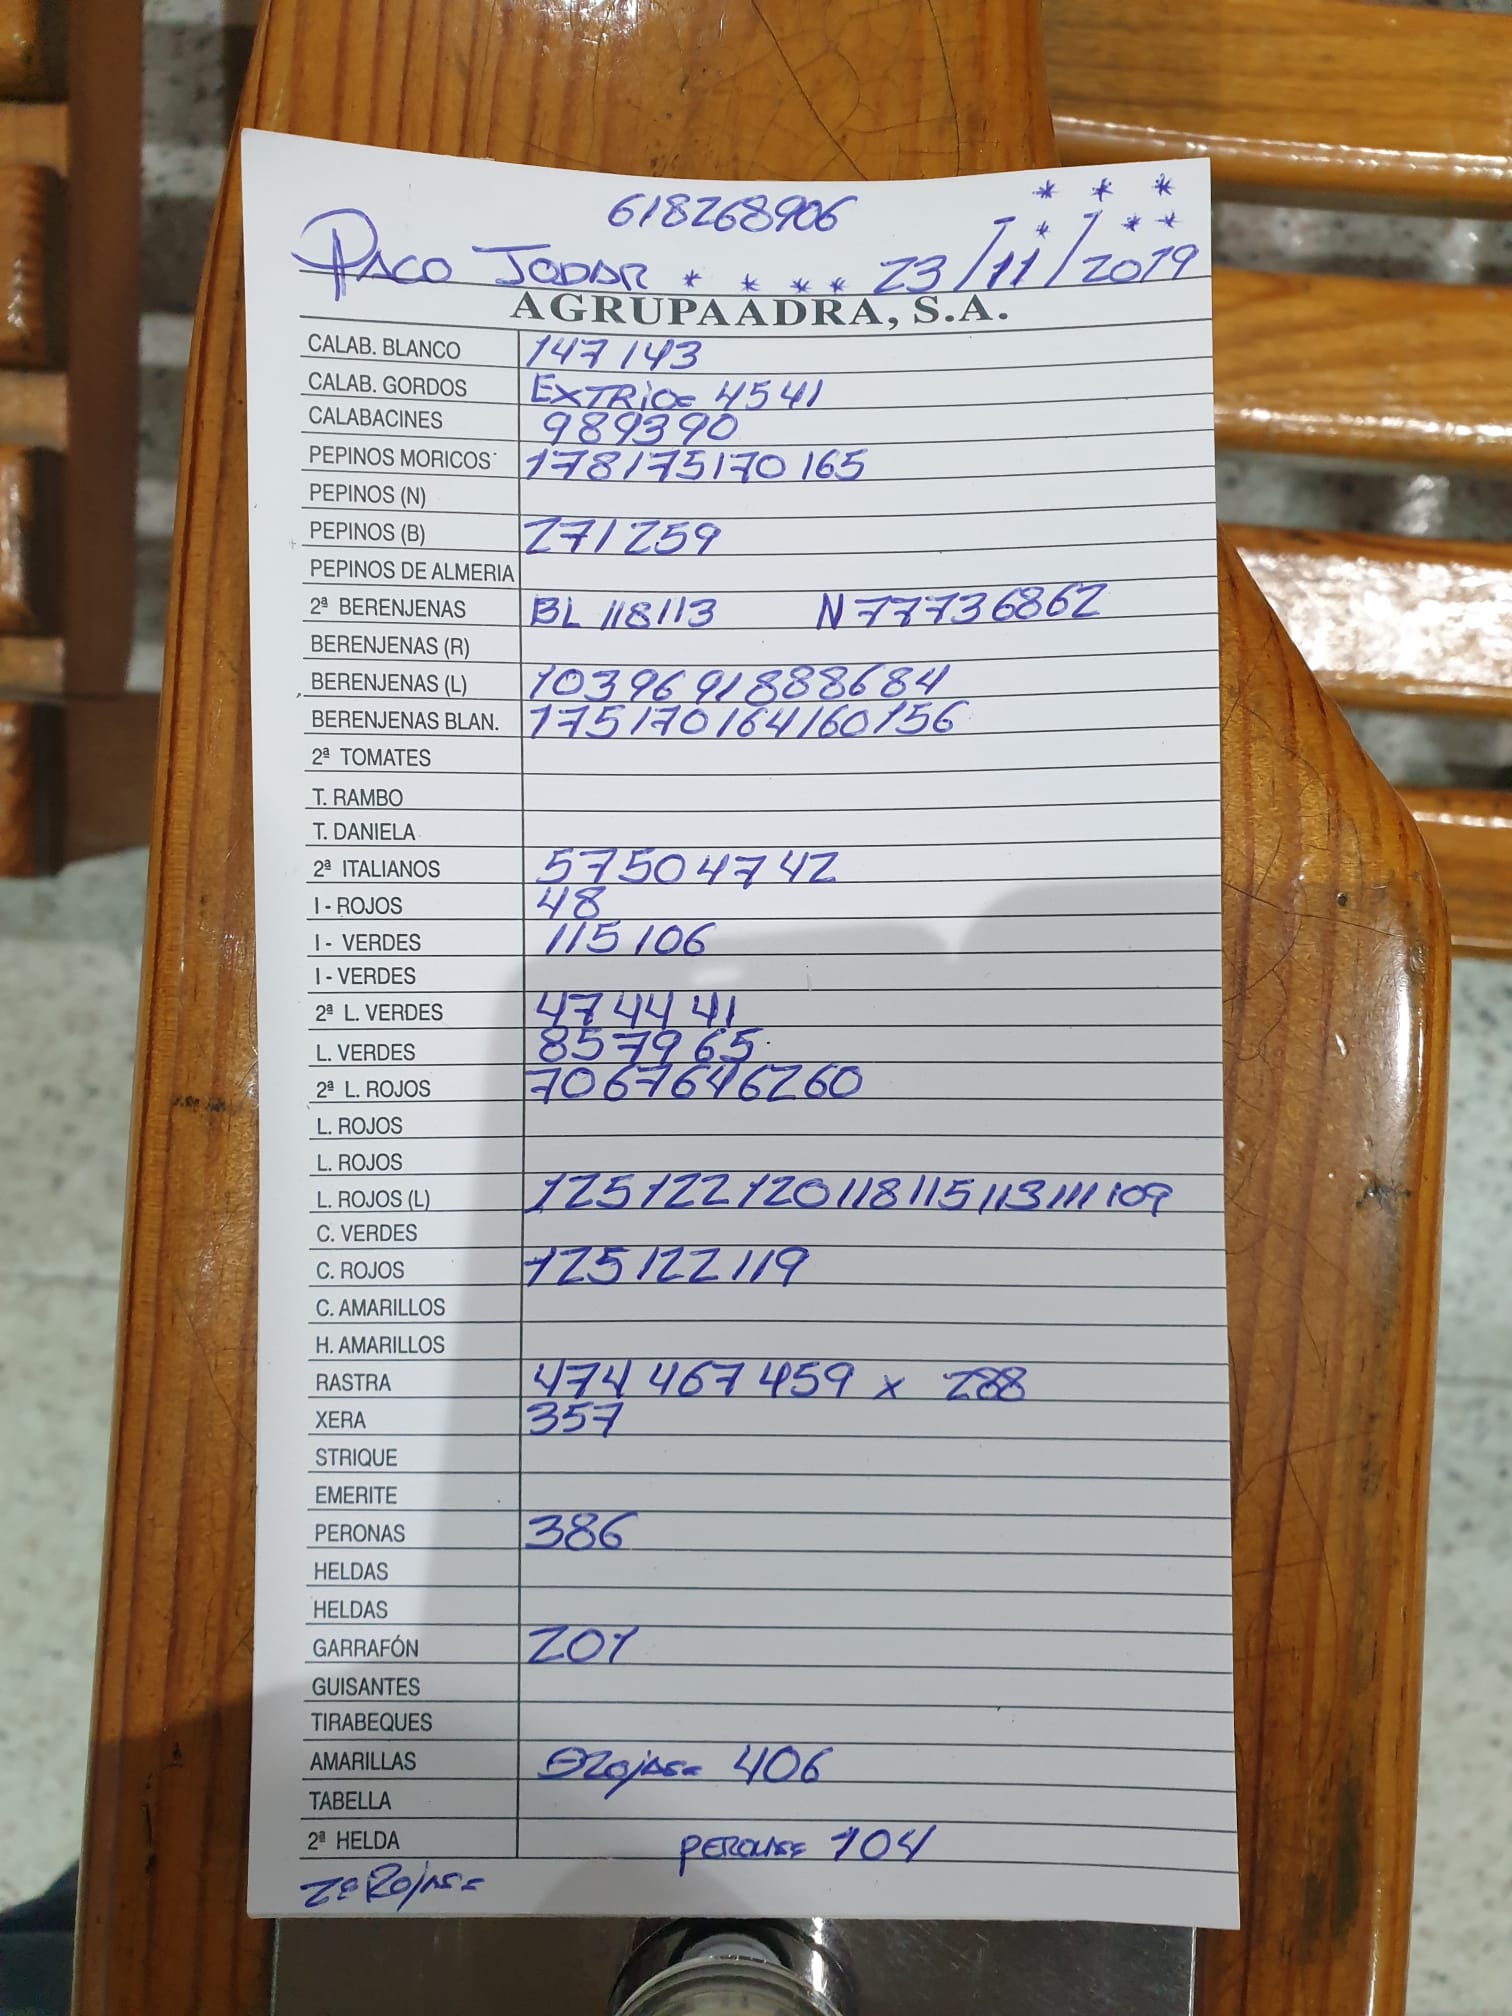 618268906
* * *
* * *
PACO JODAR * * * * 23/11/2019
AGRUPAADRA, S.A.
CALAB. BLANCO 147 143
CALAB. GORDOS 45 41
CALABACINES 98 93 90
PEPINOS MORICOS 178 175 170 165
PEPINOS (N)
PEPINOS (B) 271 259
PEPINOS DE ALMERIA
2ª BERENJENAS BL 118 113 N 77 73 68 62
BERENJENAS (R)
BERENJENAS (L) 103 96 91 88 86 84
BERENJENAS BLAN. 175 170 164 160 156
2ª TOMATES
T. RAMBO
T. DANIELA
2ª ITALIANOS 57 50 47 42
I - ROJOS 48
I - VERDES 115 106
I - VERDES
2ª L. VERDES 47 44 41
L. VERDES 85 79 65
2ª L. ROJOS 70 67 64 62 60
L. ROJOS
L. ROJOS
L. ROJOS (L) 125 122 120 118 115 113 111 109
C. VERDES
C. ROJOS 125 122 119
C. AMARILLOS
H. AMARILLOS
RASTRA 474 467 459 x 288
XERA 357
STRIQUE
EMERITE
PERONAS 386
HELDAS
HELDAS
GARRAFÓN 201
GUISANTES
TIRABEQUES
AMARILLAS Rojas= 406
TABELLA
2ª HELDA 104
2ª Rojas=